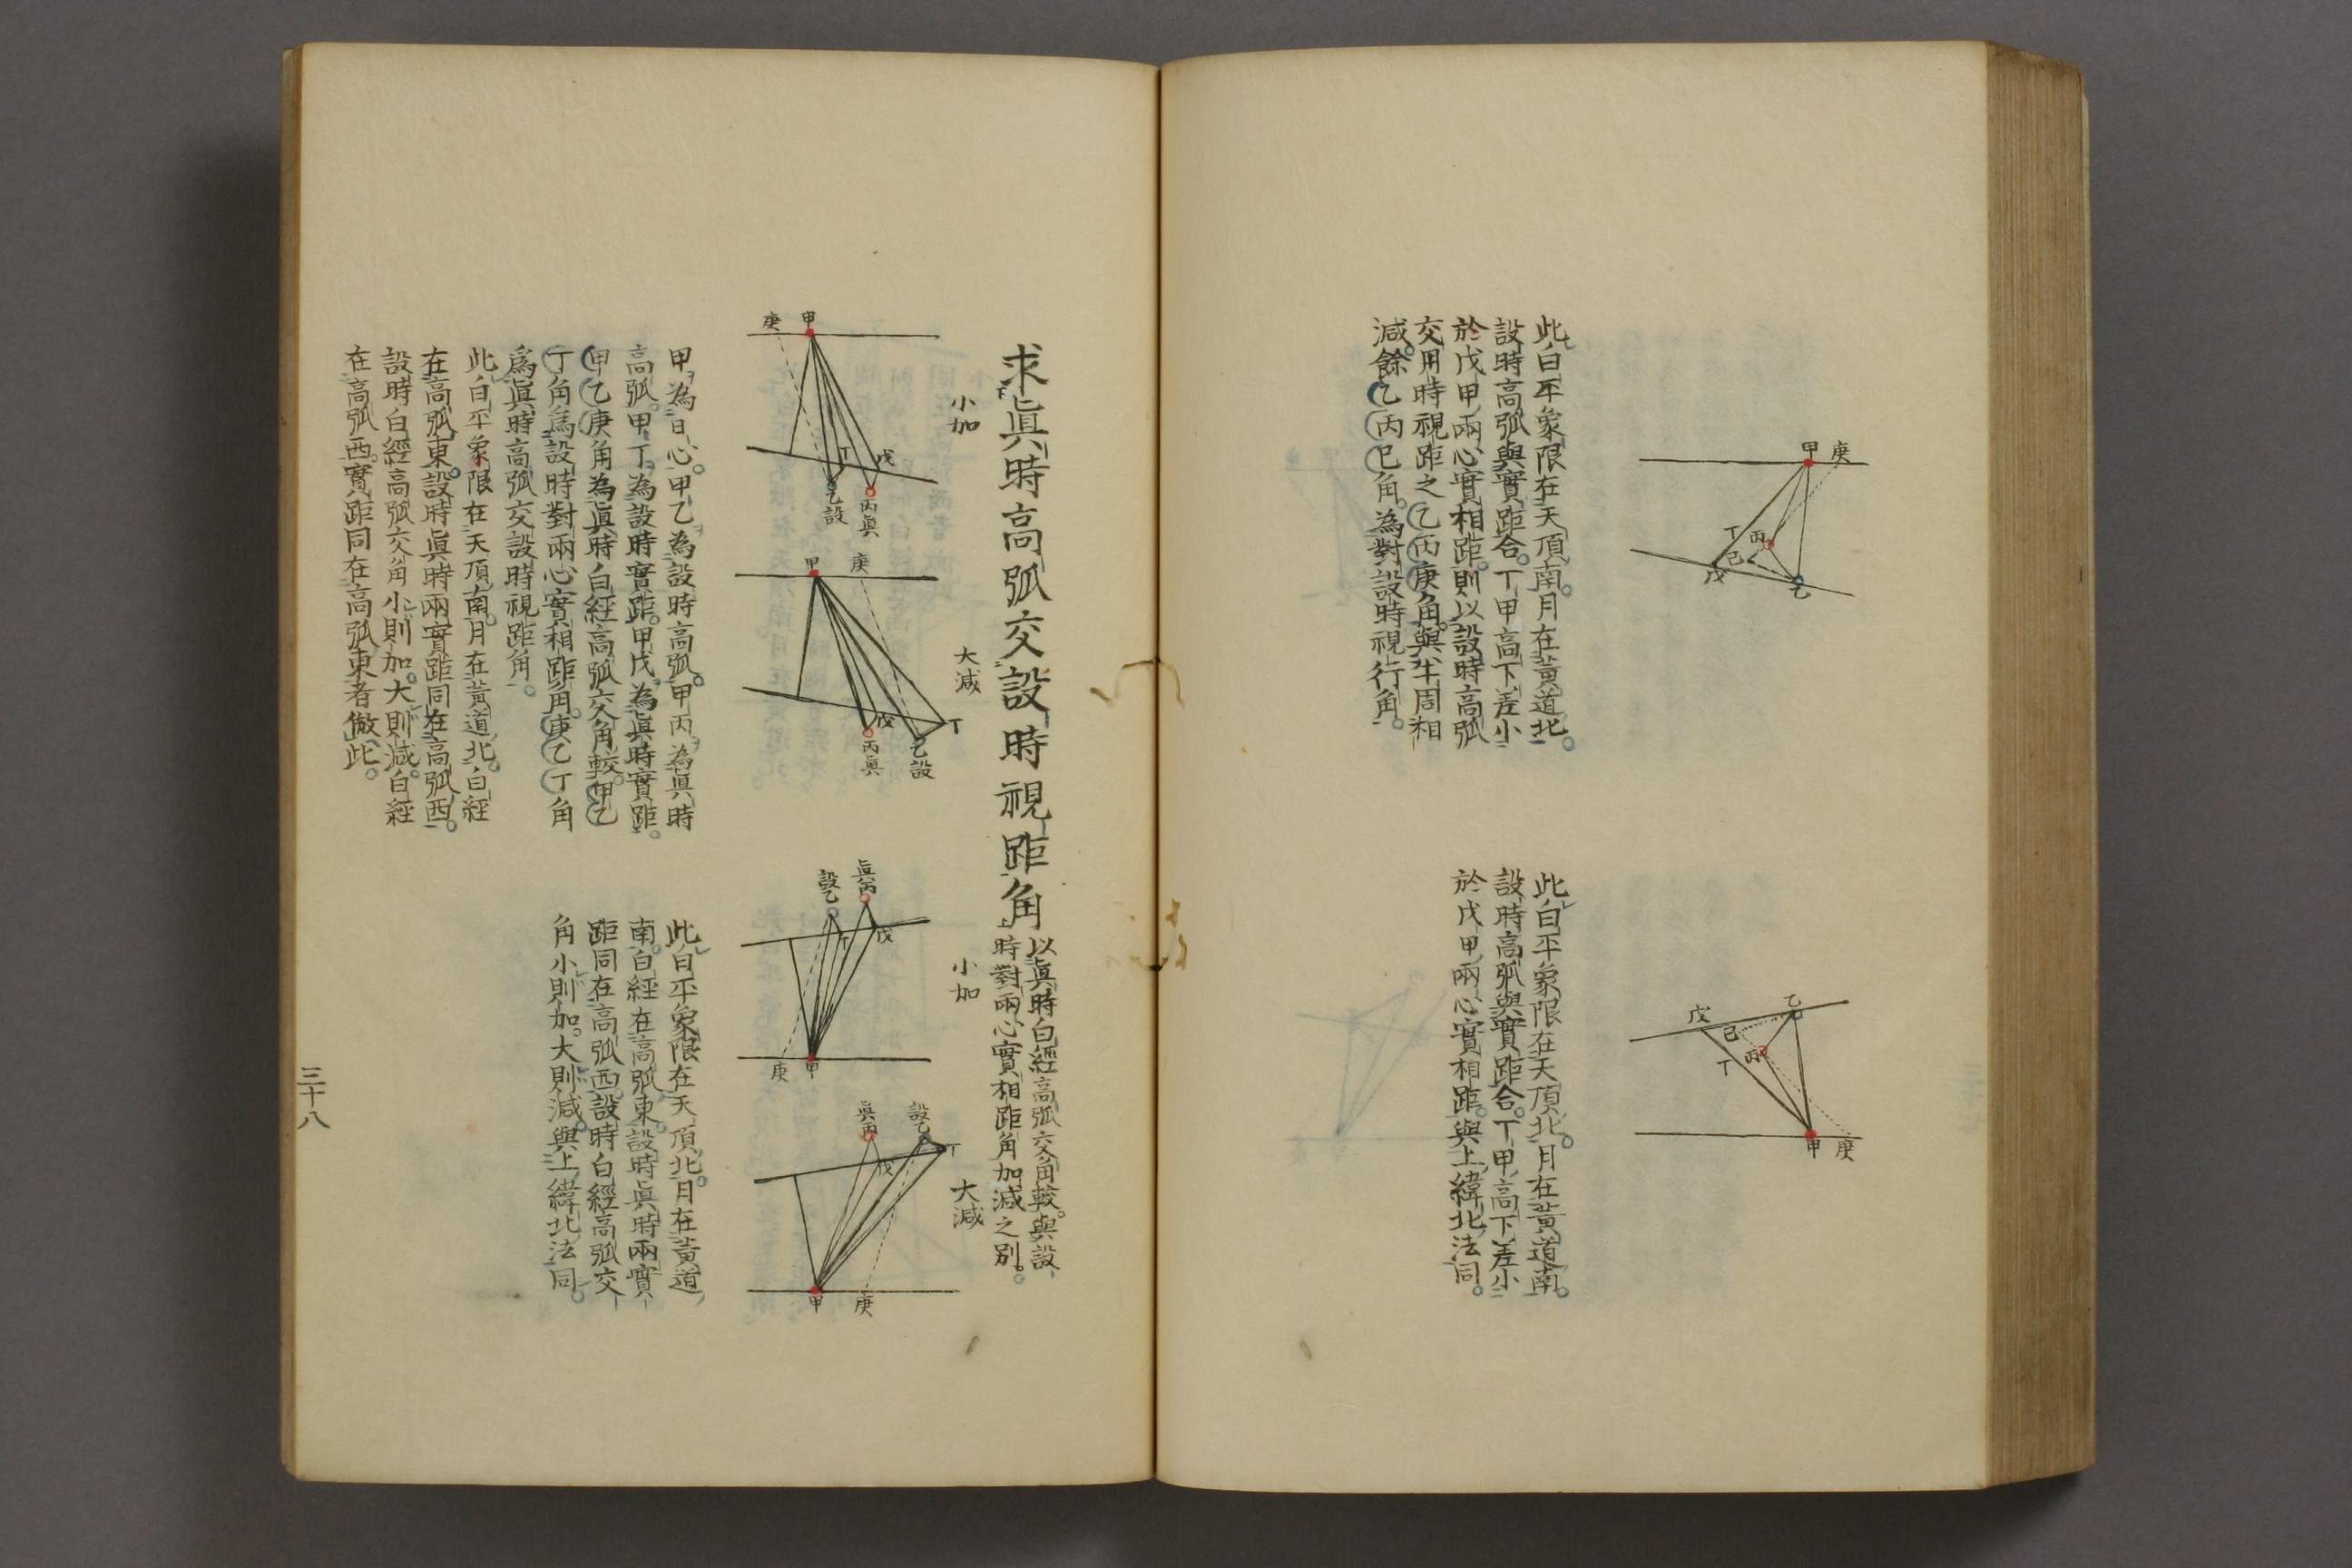 庚
甲
丁
丙
己
戊
乙
此白平象限在天頂南。月在黃道北。
設時高弧與實距合。丁甲高下差小
於戊甲兩心實相距。則以設時高弧
交用時視距之乙丙庚角。與半周相
減。餘乙丙己角。為對設時視行角。
乙
戊
己
丙
丁
甲
庚
此白平象限在天頂北。月在黃道南。
設時高弧與實距合。丁甲高下差小
於戊甲兩心實相距。與上緯北法同。
求眞時高弧交設時視距角
以眞時白經高弧交角較。與設
時對兩心實相距角加減之別。
小加
甲
庚
丁
戊
乙設
丙眞
大減
甲
庚
丁
戊
乙設
丙眞
甲為日心。甲乙為設時高弧。甲丙為眞時
高弧。甲丁為設時實距。甲戊為眞時實距。
甲乙庚角為眞時白經高弧交角較。甲乙
丁角爲設時對兩心實相距角。庚乙丁角
爲眞時高弧交設時視距角。
此白平象限在天頂南。月在黃道北。白經
在高弧東。設時眞時兩實距同在高弧西。
設時白經高弧交角小則加。大則減。白經
在高弧西。實距同在高弧東者倣此。
小加
眞丙
設乙
丁
戊
甲
庚
大減
設乙
眞丙
丁
戊
甲
庚
此白平象限在天頂北。月在黃道
南。白經在高弧東。設時眞時兩實
距同在高弧西。設時白經高弧交
角小則加。大則減。與上緯北法同。
三十八